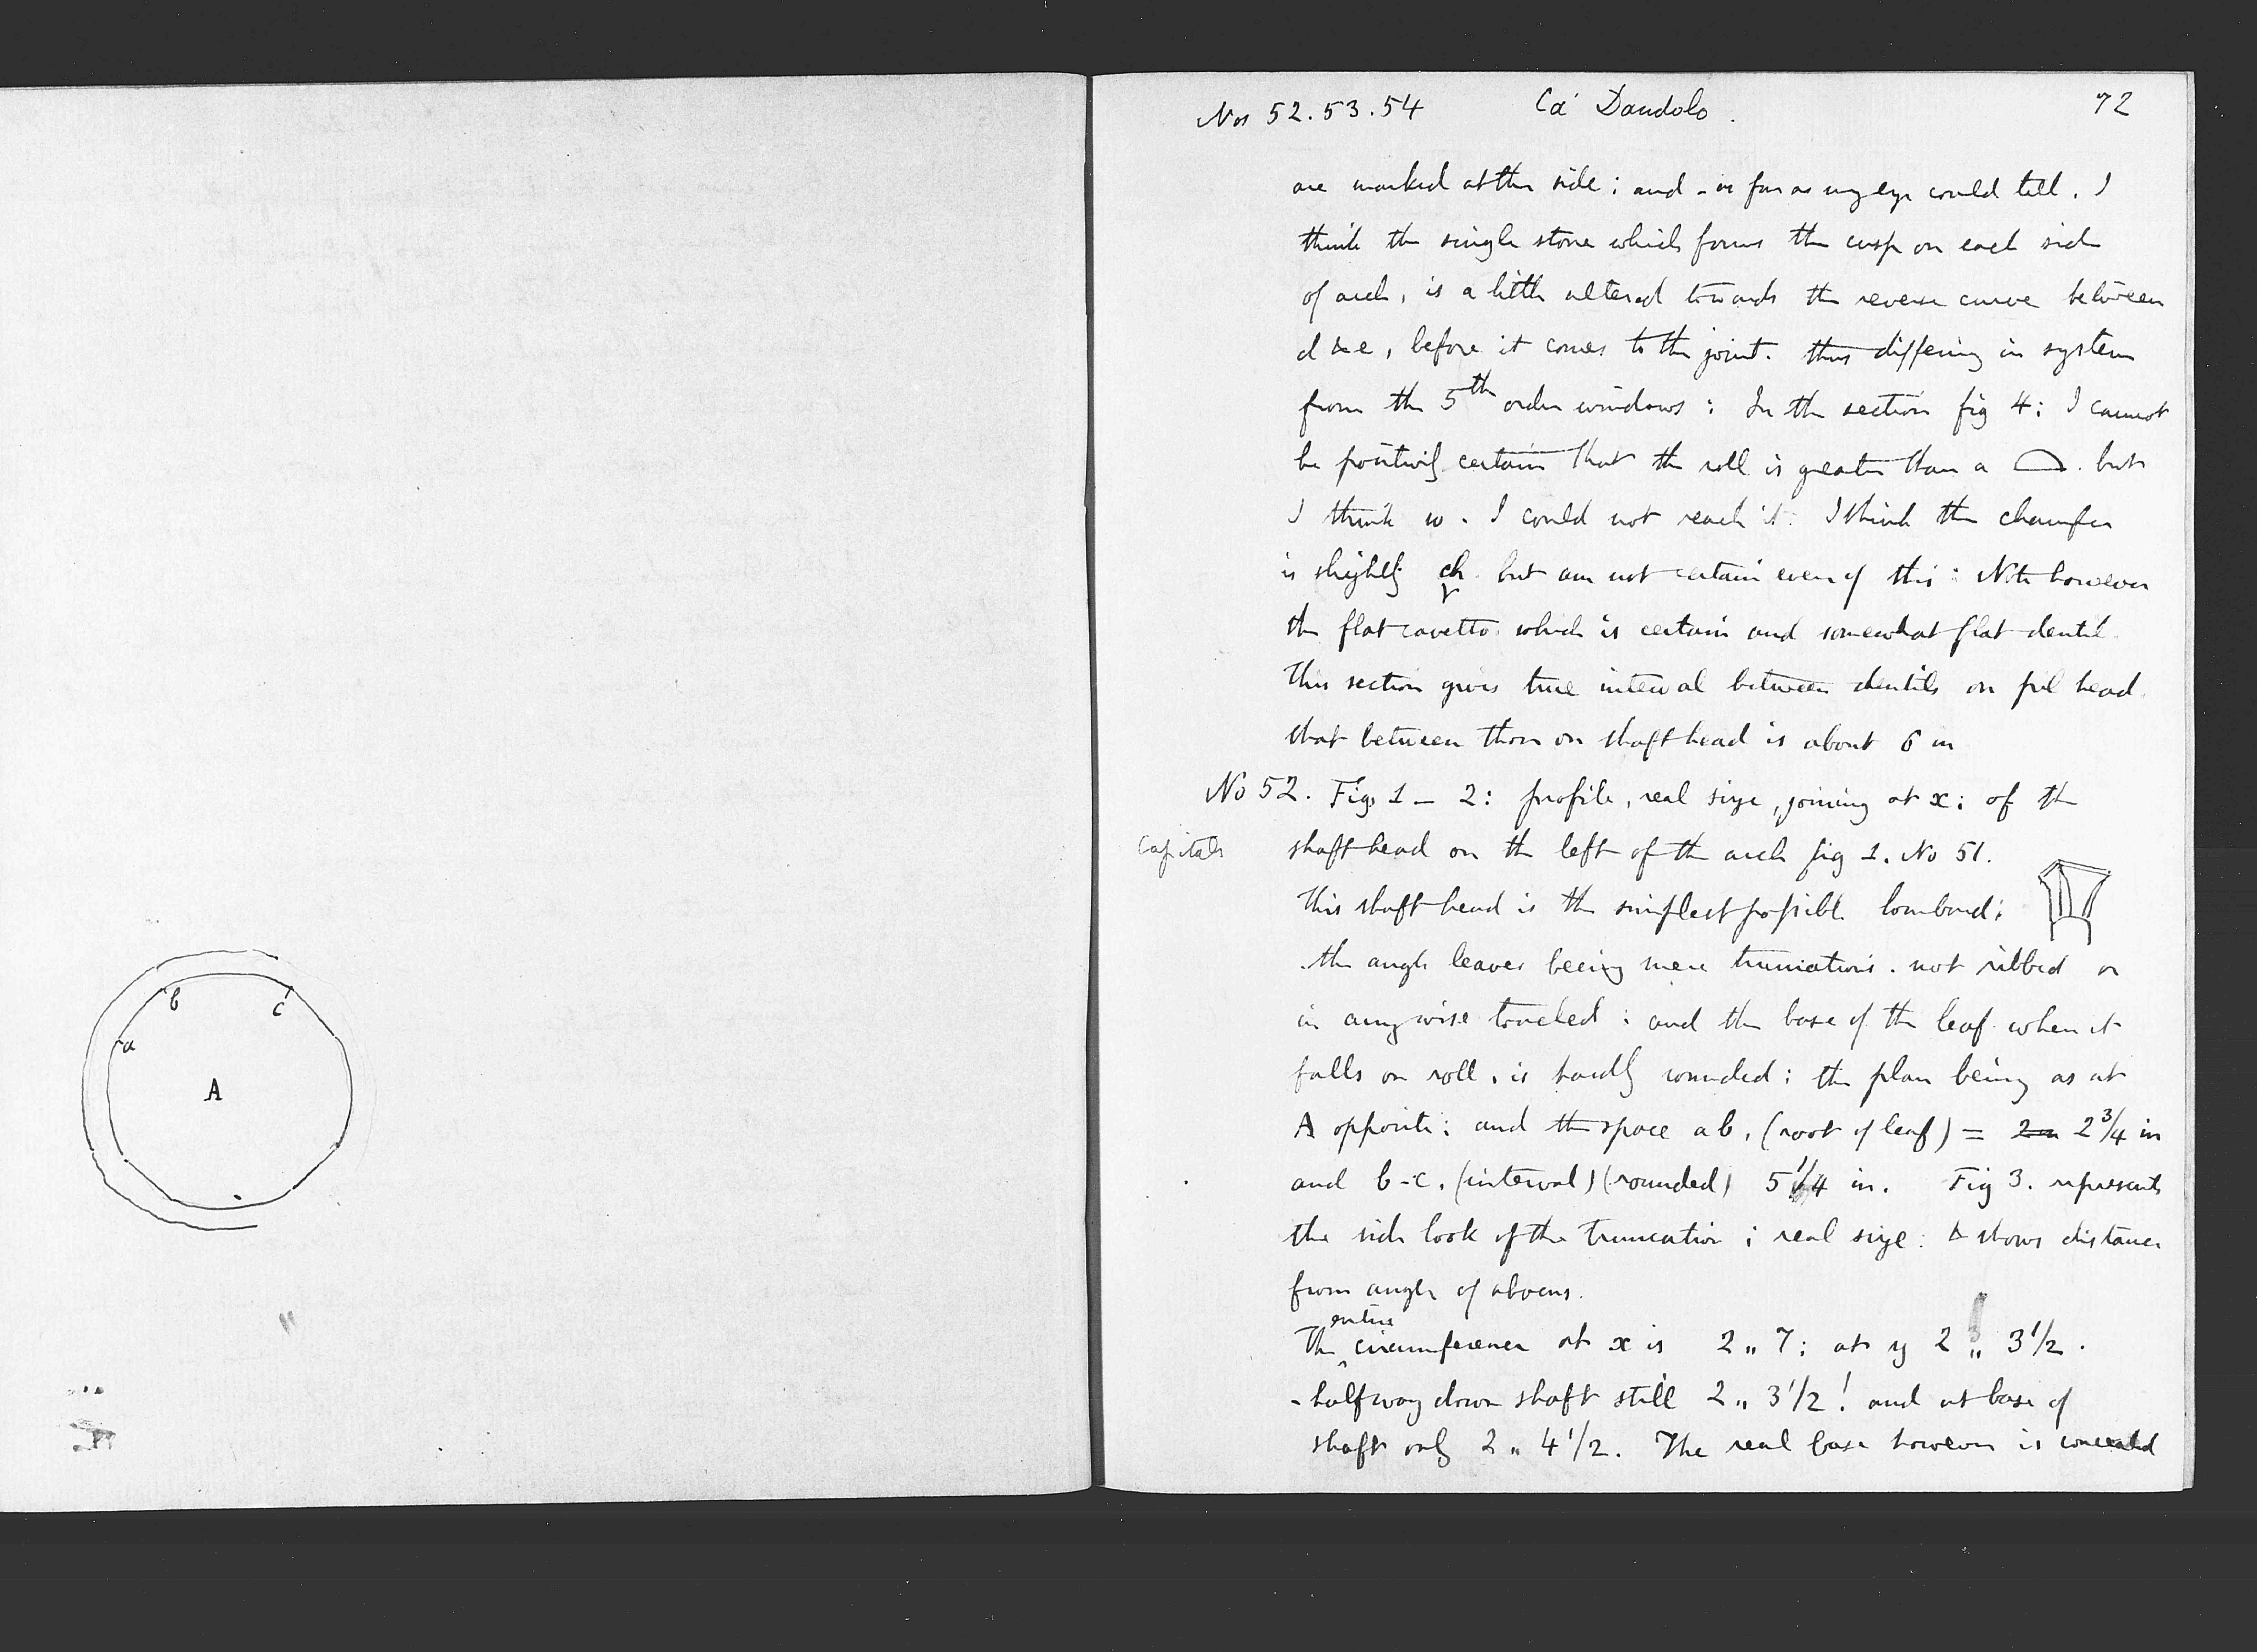 b
c
a
A
Nos 52. 53. 54 Ca' Dandolo. 72
are marked at the side; and - as far as my eye could tell. I
think the single stone which forms the cusp on each side
of arch, is a little altered towards the reverse curve between
d & e, before it comes to the joint. thus differing in system
from the 5th order windows: In the section fig 4: I cannot
be positively certain that the roll is greater than a . but
I think so. I could not reach it. I think the chamfer
is slightly ch. but am not certain even of this: Note however
the flat cavetto which is certain and somewhat flat dentil.
This section gives true interval between dentils on pil head.
that between those on shaft head is about 6 in
No 52. Figs 1 - 2: profile, real size, joining at x: of the
Capitals
shaft head on the left of the arch fig 1. No 51.
This shaft head is the simplest possible lombard;
the angle leaves being mere truncations. not ribbed or
in any wise touched: and the base of the leaf when it
falls on roll, is hardly rounded: the plan being as at
A opposite: and the space ab, (root of leaf) = 2 3/4 in
and b-c. (interval) (rounded) 5 1/4 in. Fig 3. represents
the side look of the truncation; real size: shows distance
from angle of abacus.
The entire circumference at x is 2 „ 7; at y 2 „ 3 1/2.
- halfway down shaft still 2 „ 3 1/2! and at base of
shaft only 2 „ 4 1/2. The real base however is concealed